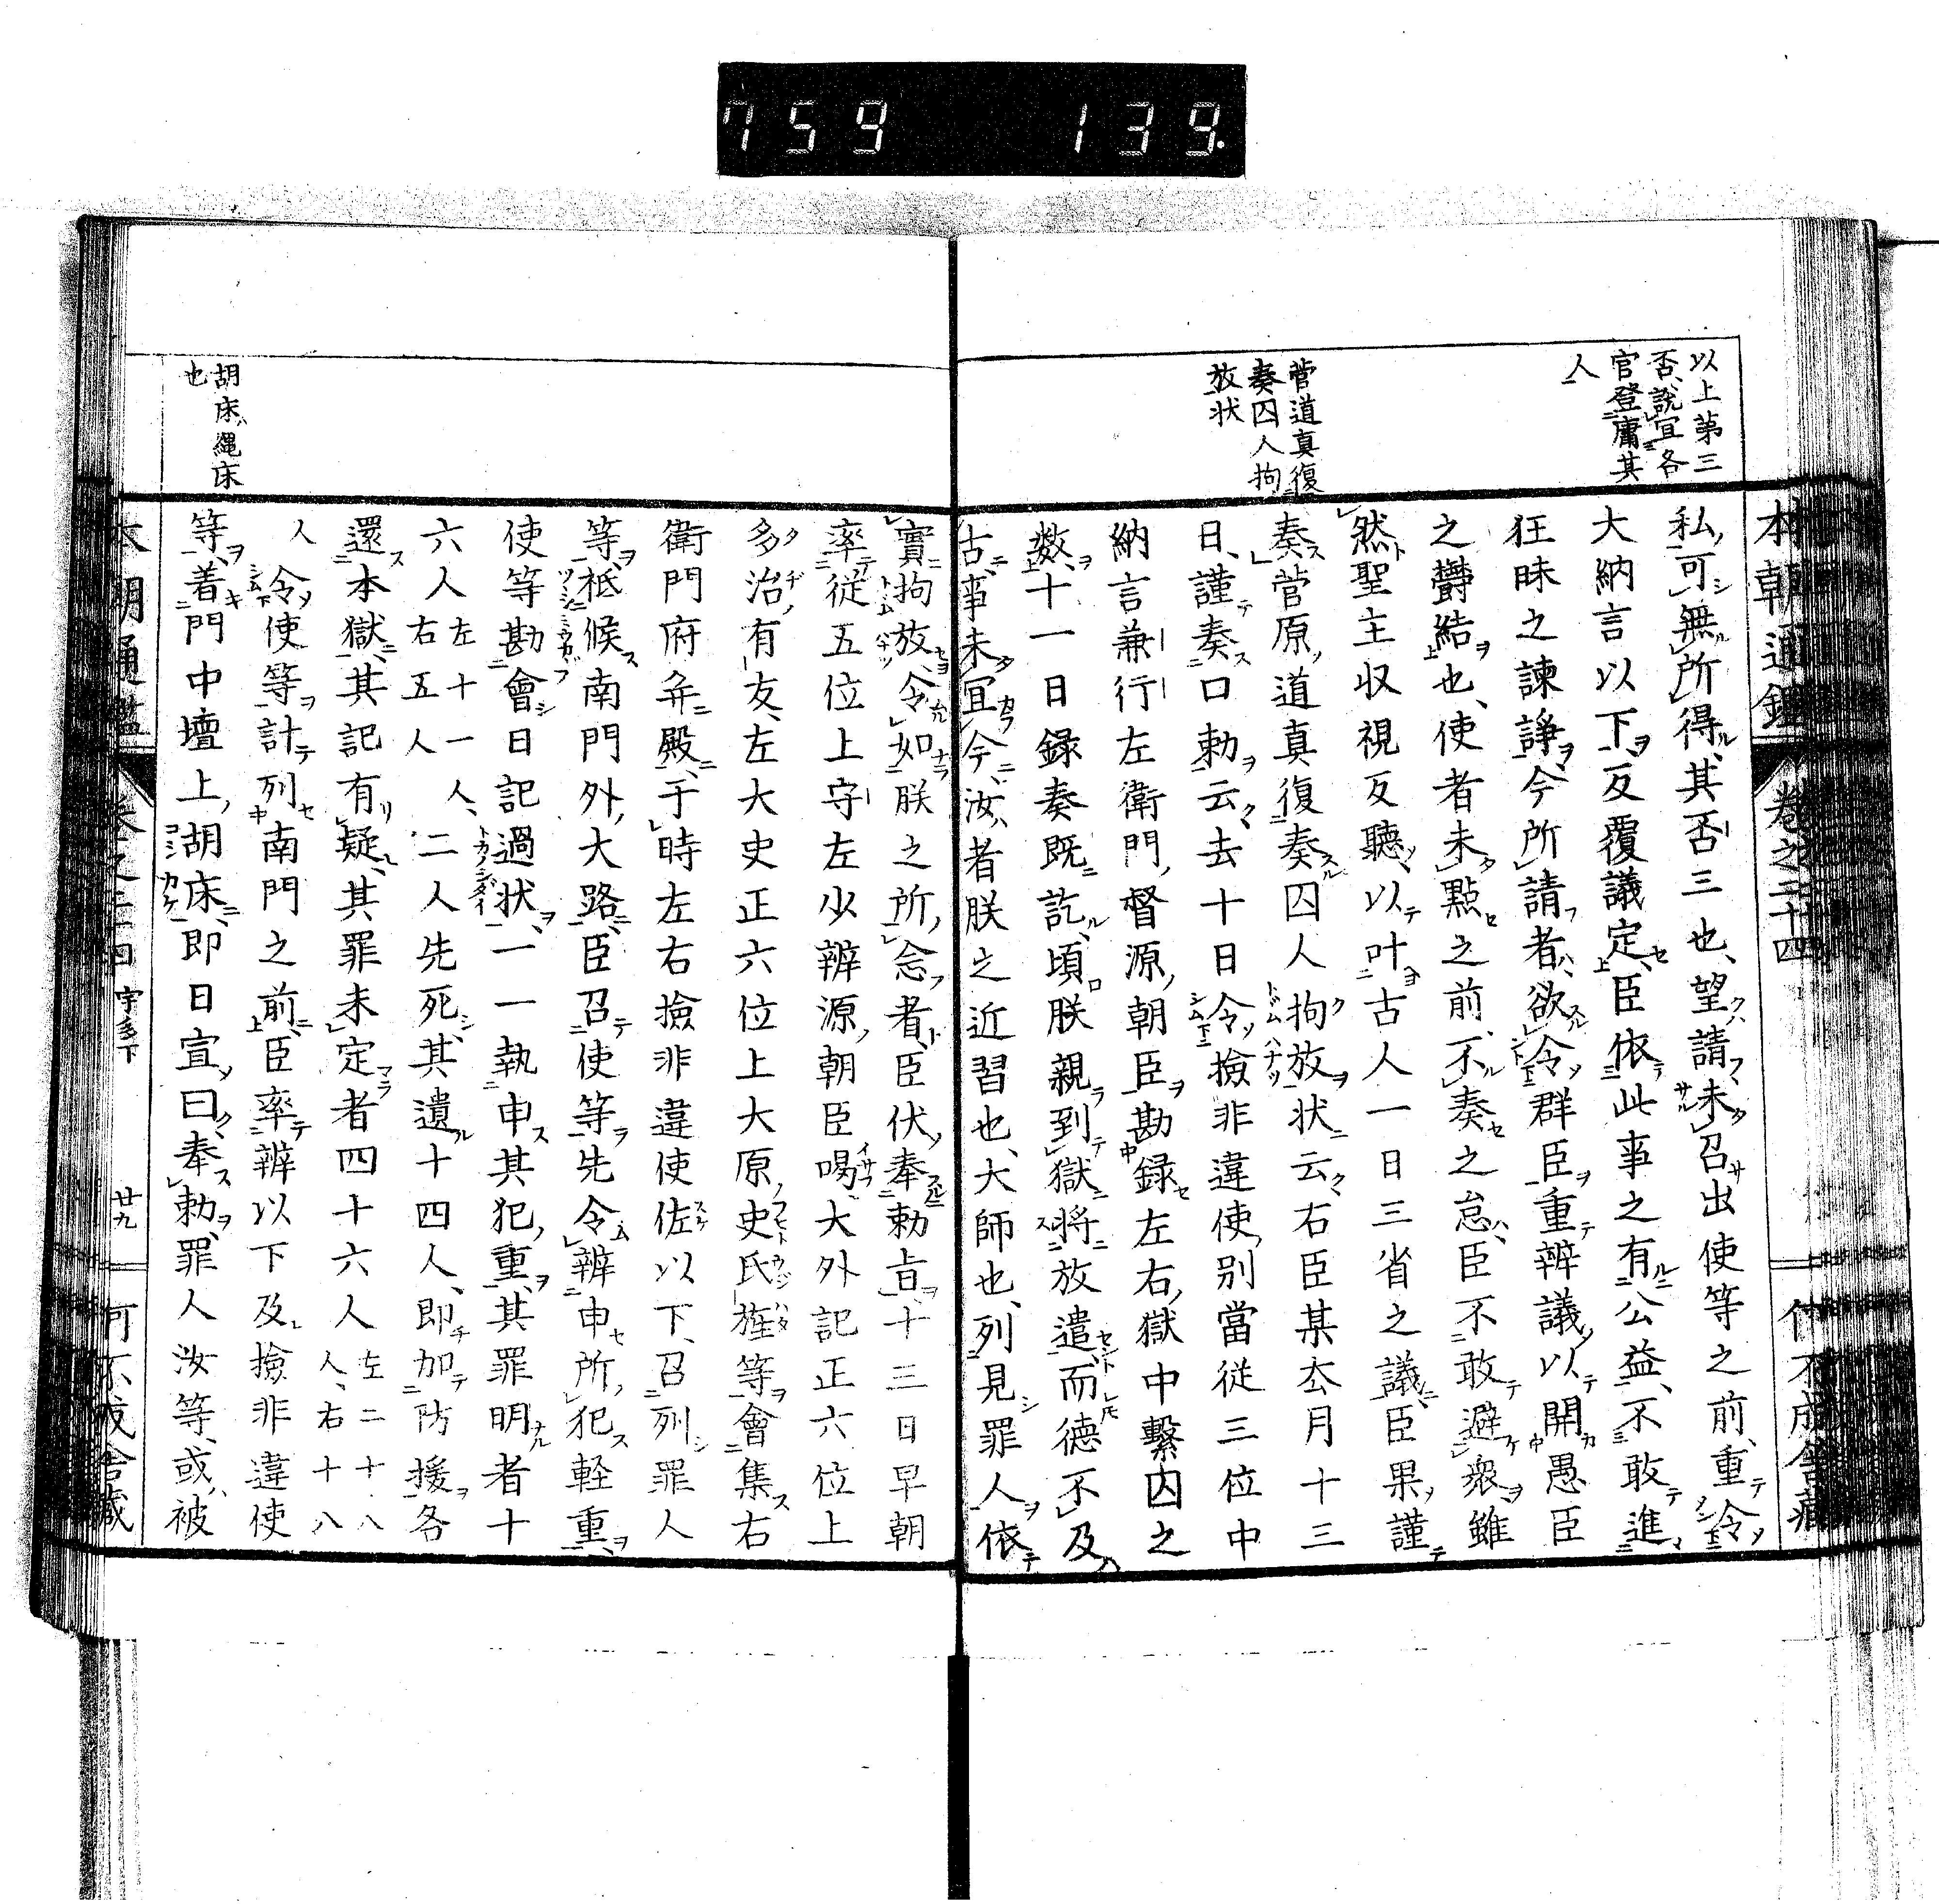 759 139.
本朝通鑑 卷之二十四
以上第三
否說宜各
官登庸其
人
菅道真復
奏囚人拘
放状
私可無所得其否三也望請未召出使等之前重令
大納言以下反覆議定臣依此事之有公益不敢進
狂昧之諫諍今所請者欲令群臣重辨議以開愚臣
之欝結也使者未點之前不奏之怠臣不敢避衆雖
然聖主収視反聽以叶古人一日三省之議臣果謹
奏菅原道真復奏囚人拘放状云右臣某去月十三
日謹奏口勅云去十日令撿非違使別當従三位中
納言兼行左衛門督源朝臣勘録左右獄中繫囚之
數十一日録奏既訖頃朕親到獄将放遣而德不及
古事未宜今汝者朕之近習也大師也列見罪人依
實拘放令如朕之所念者臣伏奉勅旨十三日早朝
率従五位上守左少辨源朝臣唱大外記正六位上
多治有友左大史正六位上大原史氏雄等會集右
衛門府弁殿于時左右撿非違使佐以下召列罪人
等祗候南門外大路臣召使等先令辨申所犯軽重
使等勘會日記過状一一執申其犯重其罪明者十
六人左十一人
右五人二人先死其遺十四人即加防援各
還本獄其記有疑其罪未定者四十六人左二十八
人右十八
人令使等計列南門之前臣率辨以下及撿非違使
等着門中壇上胡床即日宣曰奉勅罪人汝等或被
胡床繩床
也
本朝通鑑 卷之二十四 宇多下 廿九